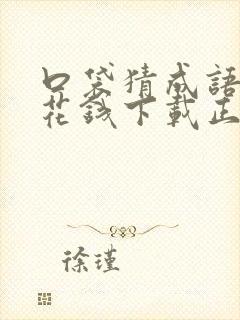 口袋猜成語
花錢下載正
徐瑾